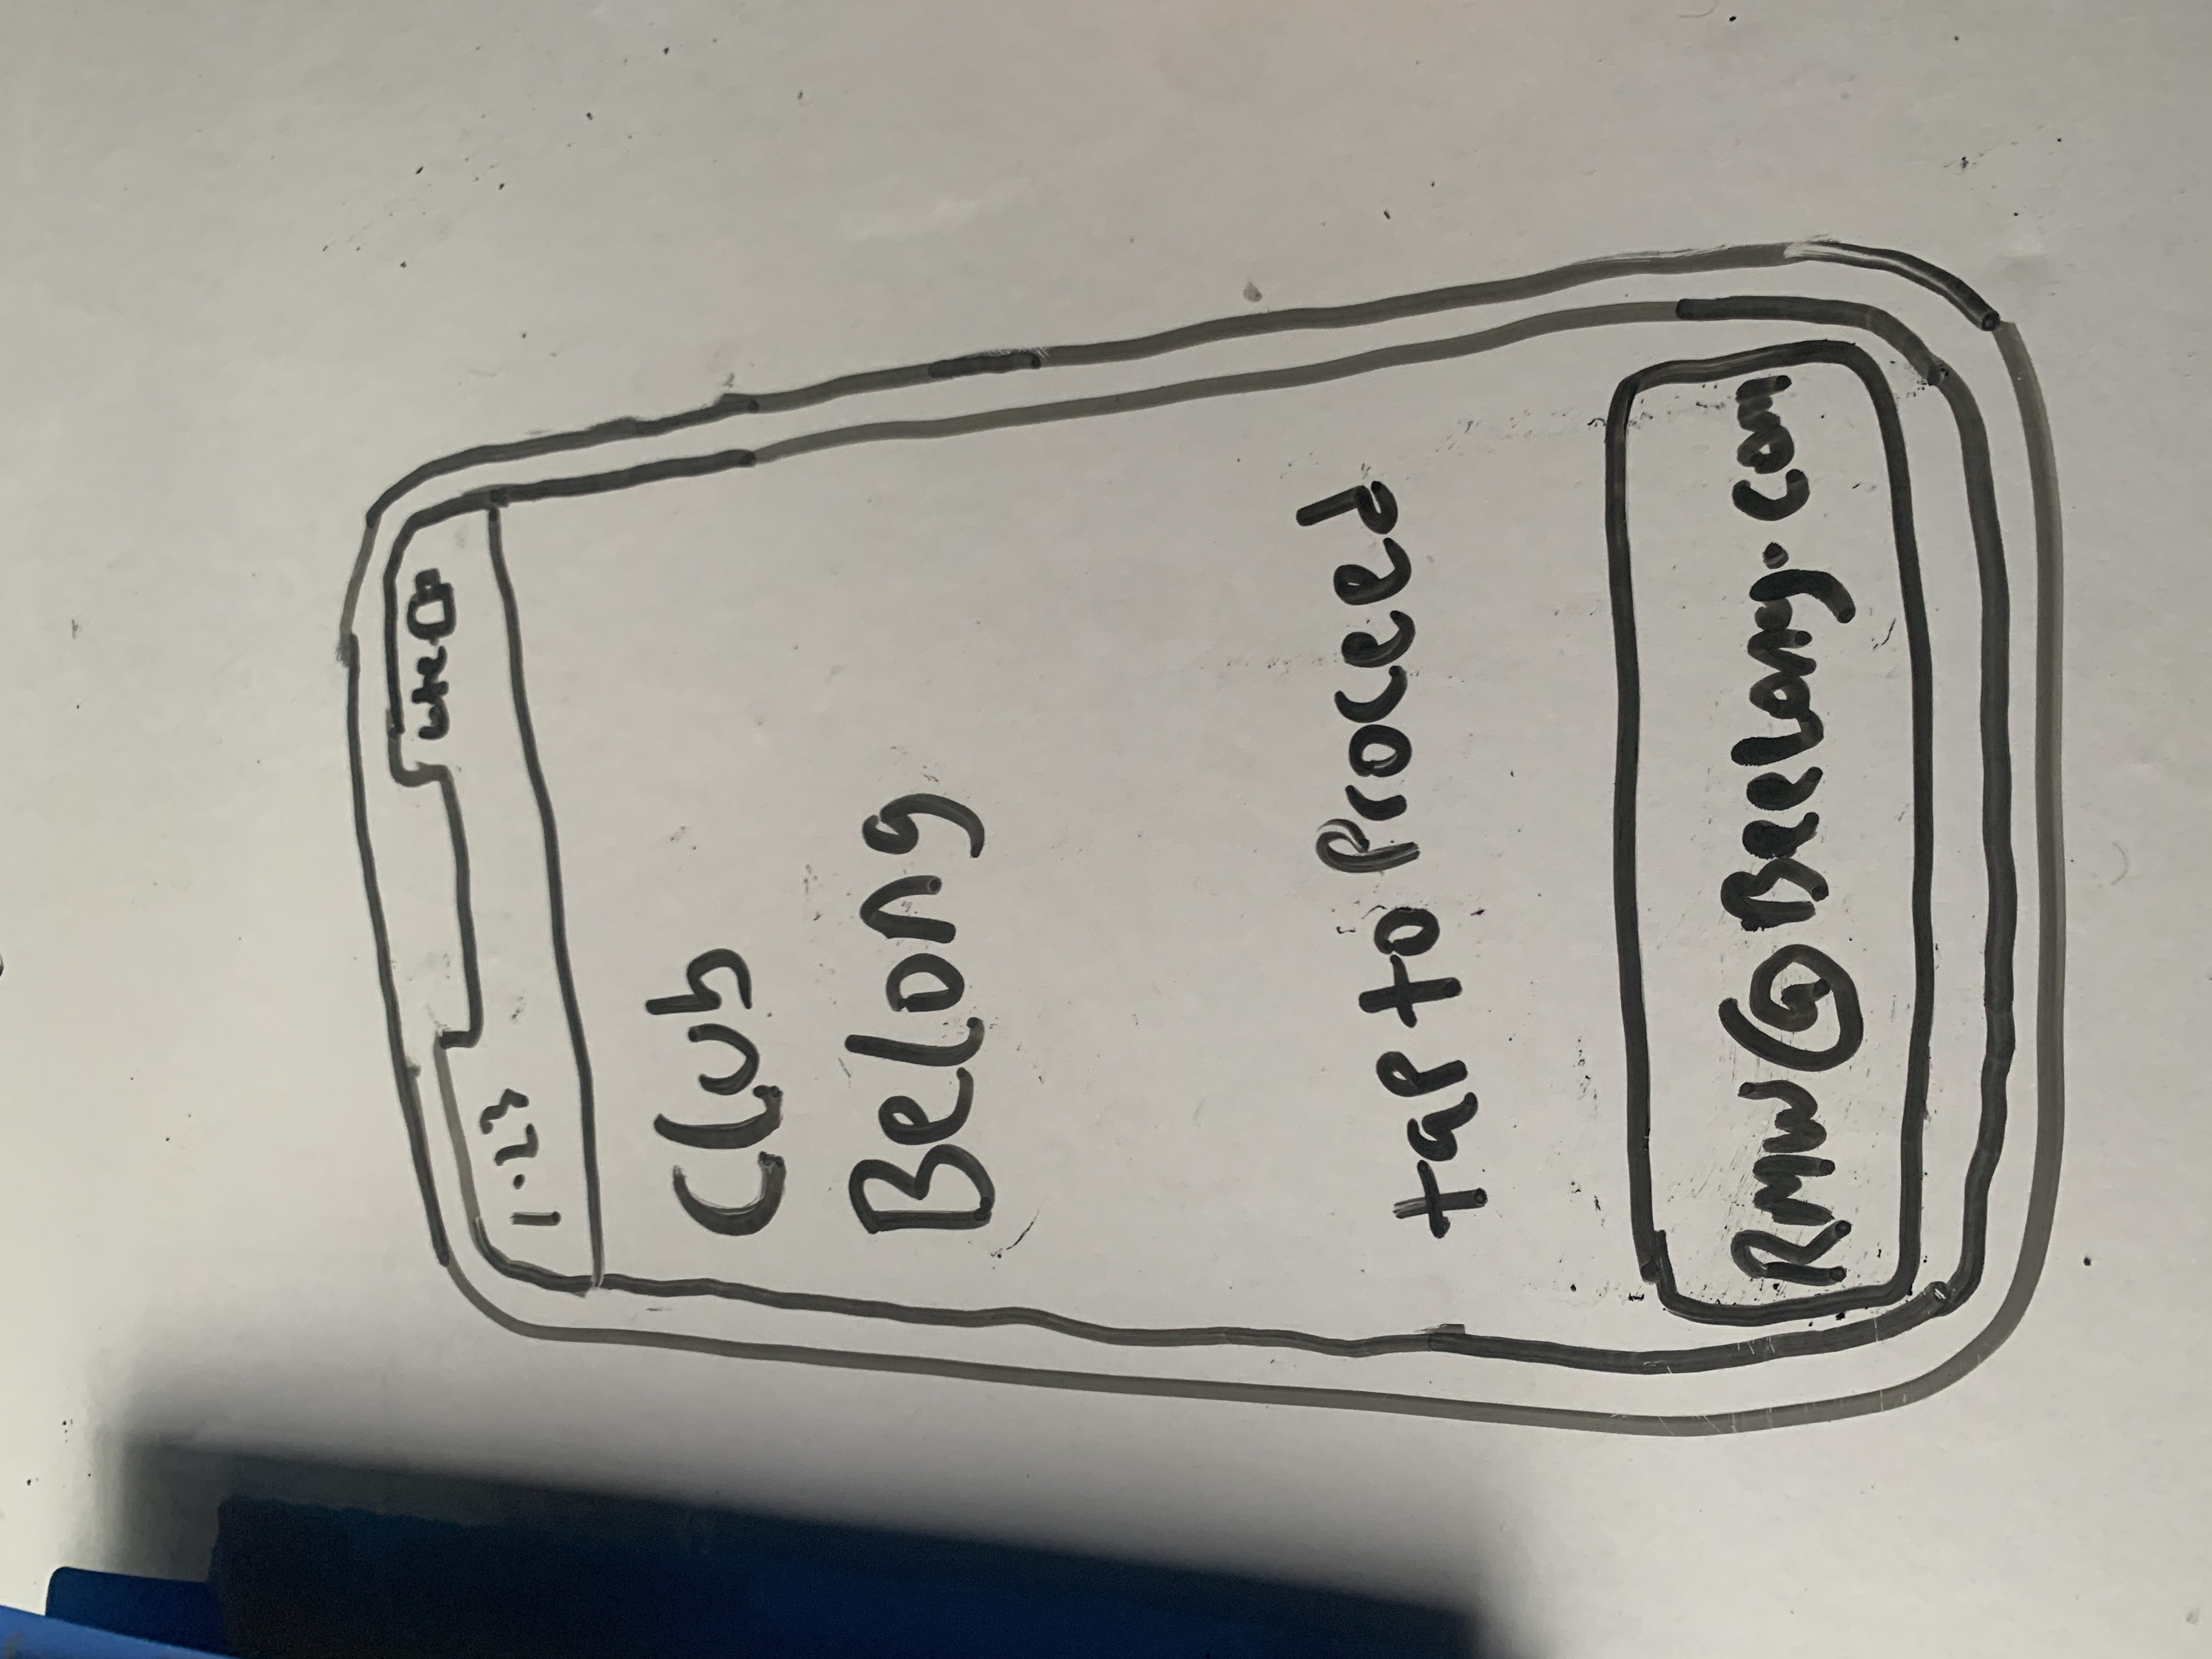 1:23 LTE
Club
Belong
tap to Proceed
RMW@Beelong.com